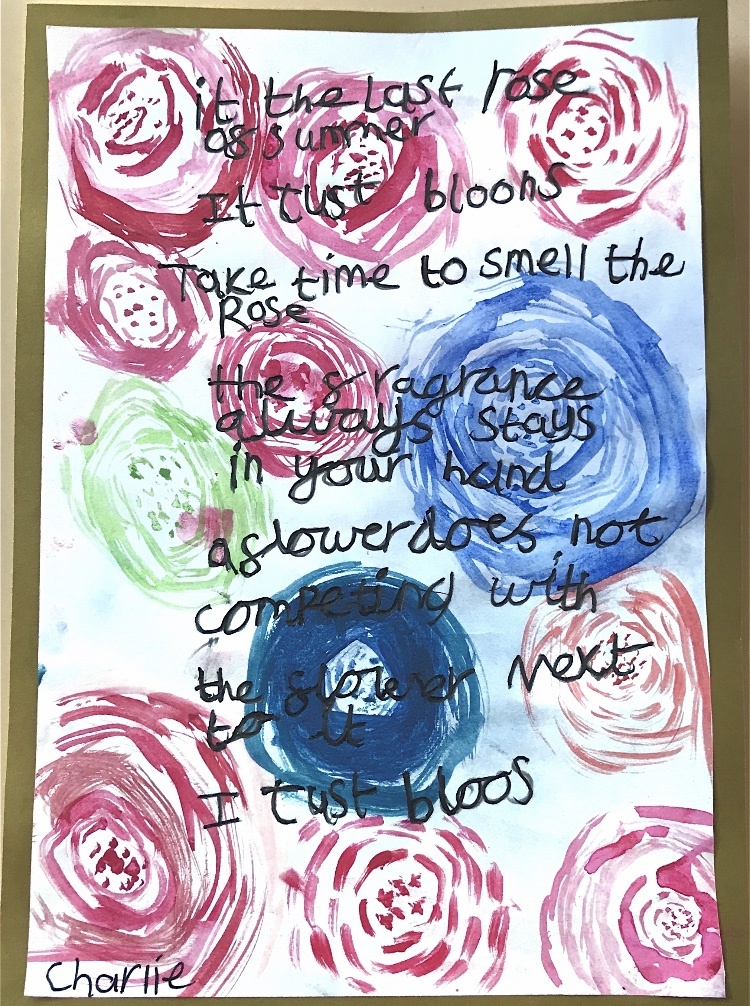 it the Last rose
of summer
It tust blooms
Take time to smell the
Rose
the fragrance
always stays
in your hand
a flower does not
competind with
the flower next
to it
I tust bloos
Charlie